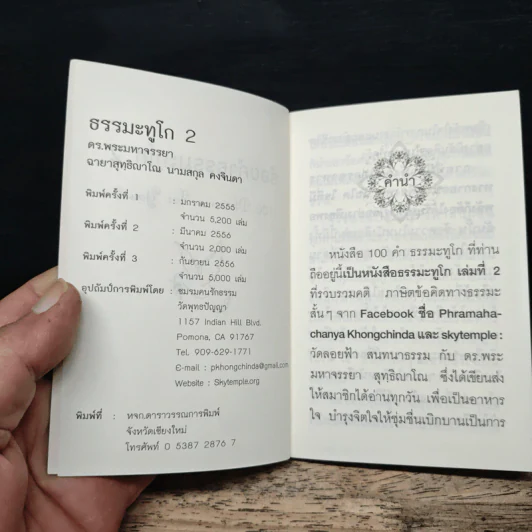 ธรรมะทูโก 2
ดร.พระมหาจรรยา
ฉายาสุทฺธิญาโณ นามสกุล คงจินดา
พิมพ์ครั้งที่ 1 : มกราคม 2556
จำนวน 5,200 เล่ม
พิมพ์ครั้งที่ 2 : มีนาคม 2556
จำนวน 2,000 เล่ม
พิมพ์ครั้งที่ 3 : กันยายน 2556
จำนวน 5,000 เล่ม
อุปถัมป์การพิมพ์โดย : ชมรมคนรักธรรม
วัดพุทธปัญญา
1157 Indian Hill Blvd.
Pomona, CA 91767
Tel. 909-629-1771
E-mail : pkhongchinda@gmail.com
Website : Skytemple.org
พิมพ์ที่ : หจก.ดาราวรรณการพิมพ์
จังหวัดเชียงใหม่
โทรศัพท์ 0 5387 2876 7
คำนำ
หนังสือ 100 คำ ธรรมะทูโก ที่ท่าน
ถืออยู่นี้เป็นหนังสือธรรมะทูโก เล่มที่ 2
ที่รวบรวมคติ ภาษิตข้อคิดทางธรรมะ
สั้นๆ จาก Facebook ชื่อ Phramaha-
chanya Khongchinda และ skytemple :
วัดลอยฟ้า สนทนาธรรม กับ ดร.พระ
มหาจรรยา สุทฺธิญาโณ ซึ่งได้เขียนส่ง
ให้สมาชิกได้อ่านทุกวัน เพื่อเป็นอาหาร
ใจ บำรุงจิตใจให้ชุ่มชื่นเบิกบานเป็นการ